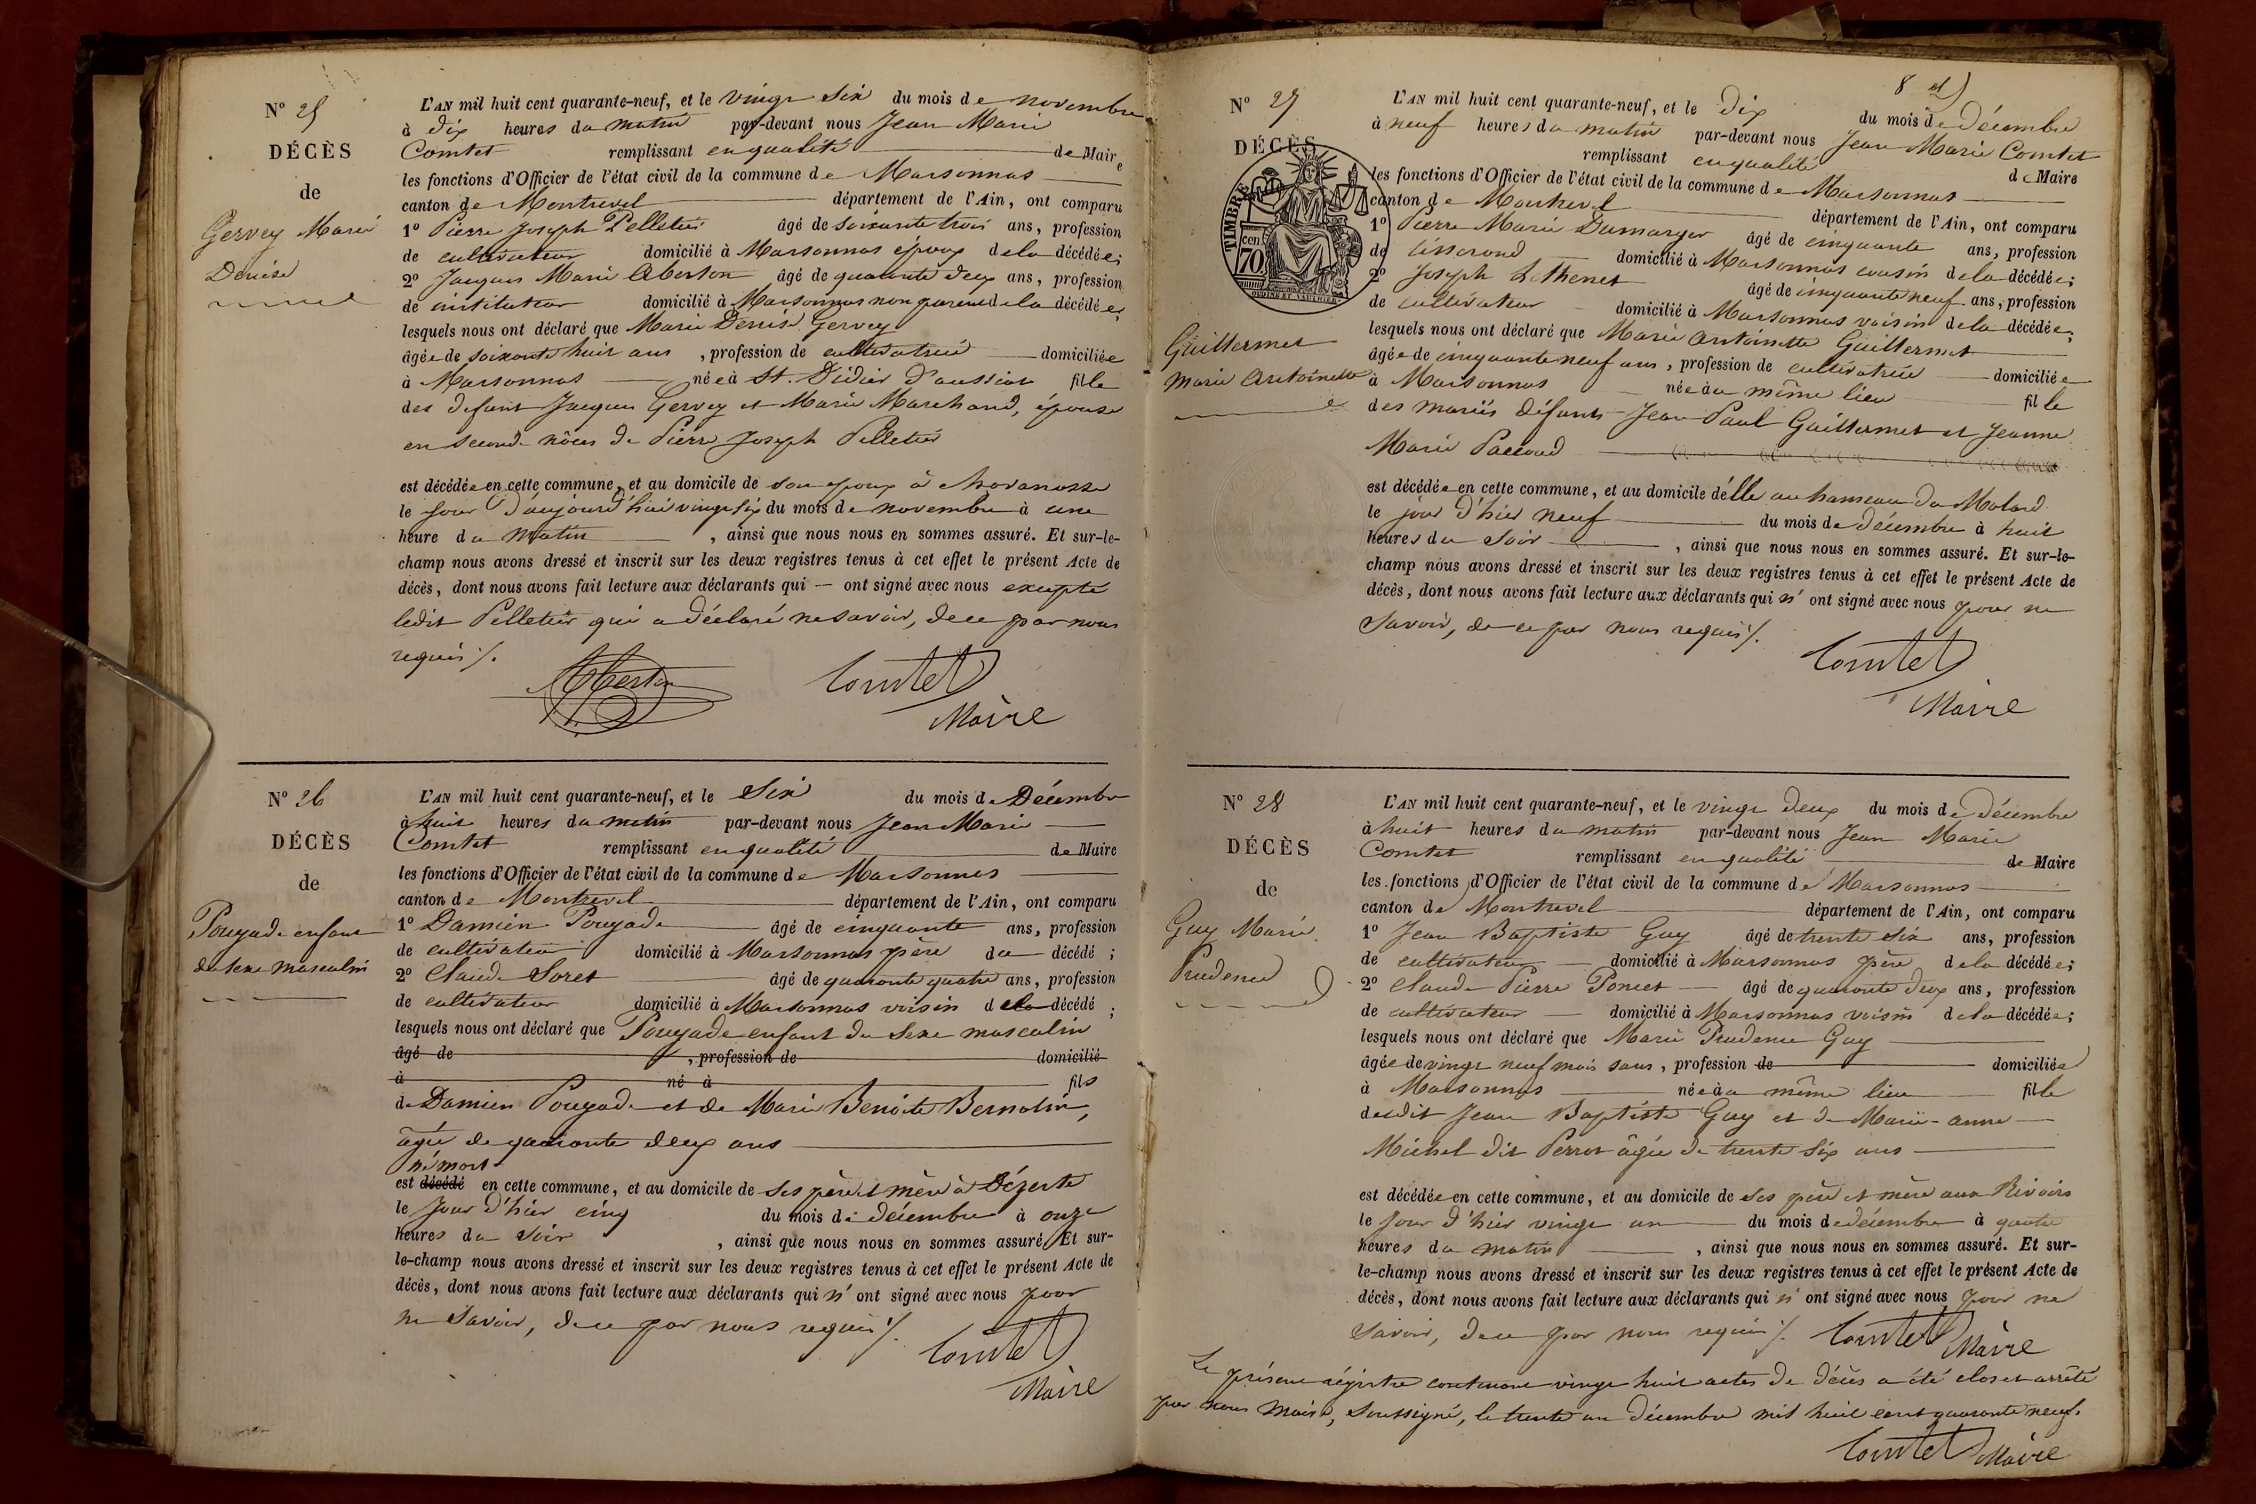 N° 25
DÉCÈS
de
Gervey Marie
Denise
L'AN mil huit cent quarante-neuf, et le vingt six du mois de novembre
à dix heures du matin par-devant nous Jean Marie
Comtet remplissant en qualité de Maire
les fonctions d'Officier de l'état civil de la commune de Marsonnas
canton de Montrevel département de l'Ain, ont comparu
1° Pierre Joseph Pelletier âgé de soixante trois ans, profession
de cultivateur domicilié à Marsonnas époux de la décédée;
2° Jacques Marie Aberton âgé de quarante deux ans, profession
de instituteur domicilié à Marsonnas non parent de la décédée;
lesquels nous ont déclaré que Marie Denise Gervey
âgée de soixante huit ans, profession de cultivatrice domiciliée
à Marsonnas née à St. Didier d'aussiat fille
des défunts Jacques Gervey et Marie Marchand, épouse
en seconde nôces de Pierre Joseph Pelletier
est décédée en cette commune, et au domicile de son époux à
le jour d'aujourd'hui vingt six du mois de novembre à une
heure du matin, ainsi que nous nous en sommes assuré. Et sur-le-
champ nous avons dressé et inscrit sur les deux registres tenus à cet effet le présent Acte de
décès, dont nous avons fait lecture aux déclarants qui — ont signé avec nous excepté
ledit Pelletier qui a déclaré ne savoir, de ce par nous
requis /.
Comtet
Maire
N° 26
DÉCÈS
de
Pougade enfant
du sexe masculin
L'AN mil huit cent quarante-neuf, et le Six du mois de Décembre
à huit heures du matin par-devant nous Jean Marie
Comtet remplissant en qualité de Maire
les fonctions d'Officier de l'état civil de la commune de Marsonnas
canton de Montrevel département de l'Ain, ont comparu
1° Damien Pougade âgé de cinquante ans, profession
de cultivateur domicilié à Marsonnas père du décédé;
2° Claude Soret âgé de quarante quatre ans, profession
de cultivateur domicilié à Marsonnas voisin du décédé;
lesquels nous ont déclaré que Pougade enfant du sexe masculin
âgé de , profession de domicilié
à né à fils
de Damien Pougade et de Marie Benoite Bernolin,
âgée de quarante deux ans
né mort
est décédé en cette commune, et au domicile de ses père et mère à Dézerte
le jour d'hier cinq du mois de décembre à onze
heures du soir, ainsi que nous nous en sommes assuré. Et sur-
le-champ nous avons dressé et inscrit sur les deux registres tenus à cet effet le présent Acte de
décès, dont nous avons fait lecture aux déclarants qui n'ont signé avec nous pour
ne savoir, de ce par nous requis /.
Comtet
Maire
N° 27
DÉCÈS
TIMBRE
cen 70
Guillermet
Marie Antoinette
L'AN mil huit cent quarante-neuf, et le Dix du mois de Décembre
à neuf heures du matin par-devant nous Jean Marie Comtet
remplissant en qualité de Maire
les fonctions d'Officier de l'état civil de la commune de Marsonnas
canton de Montrevel département de l'Ain, ont comparu
1° Pierre Marie Dumarger âgé de cinquante ans, profession
de tisserand domicilié à Marsonnas cousin de la décédée;
2° Joseph Lethenet âgé de cinquante neuf ans, profession
de cultivateur domicilié à Marsonnas voisin de la décédée;
lesquels nous ont déclaré que Marie Antoinette Guillermet
âgée de cinquante neuf ans, profession de cultivatrice domiciliée
à Marsonnas née au même lieu fille
des mariés défunts Jean Paul Guillermet et Jeanne
Marie Paccoud
est décédée en cette commune, et au domicile d'elle au hameau du Molard
le jour d'hier neuf du mois de décembre à huit
heures du soir, ainsi que nous nous en sommes assuré. Et sur-le-
champ nous avons dressé et inscrit sur les deux registres tenus à cet effet le présent Acte de
décès, dont nous avons fait lecture aux déclarants qui n'ont signé avec nous pour ne
savoir, de ce par nous requis /.
Comtet
Maire
N° 28
DÉCÈS
de
Guy Marie
Prudence
L'AN mil huit cent quarante-neuf, et le vingt deux du mois de décembre
à huit heures du matin par-devant nous Jean Marie
Comtet remplissant en qualité de Maire
les fonctions d'Officier de l'état civil de la commune de Marsonnas
canton de Montrevel département de l'Ain, ont comparu
1° Jean Baptiste Guy âgé de trente six ans, profession
de cultivateur domicilié à Marsonnas père de la décédée;
2° Claude Pierre Poncet âgé de quarante deux ans, profession
de cultivateur domicilié à Marsonnas voisin de la décédée;
lesquels nous ont déclaré que Marie Prudence Guy
âgée de vingt neuf mois sans, profession de domiciliée
à Marsonnas née au même lieu fille
dudit Jean Baptiste Guy et de Marie-anne
Michel dit Perrot âgée de trente six ans
est décédée en cette commune, et au domicile de ses père et mère aux Rivoirs
le jour d'hier vingt un du mois de décembre à quatre
heures du matin, ainsi que nous nous en sommes assuré. Et sur-
le-champ nous avons dressé et inscrit sur les deux registres tenus à cet effet le présent Acte de
décès, dont nous avons fait lecture aux déclarants qui n'ont signé avec nous pour ne
savoir, de ce par nous requis /. Comtet Maire
Le présent régistre contenant vingt huit actes de décès a été clos et arrêté
par nous Maire, soussigné, le trente un décembre mil huit cent quarante neuf.
Comtet Maire